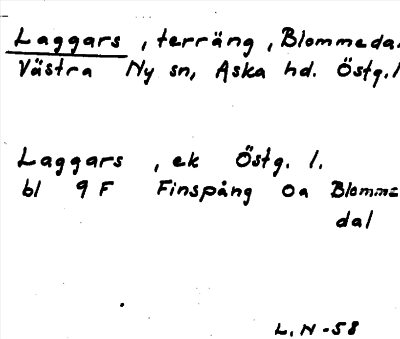 Laggars, terräng, Blommeda
Västra Ny sn, Aska hd. Östg. l
Laggars, ek Östg. l.
bl 9F Finspång Oa Blomme
dal
L. N -58